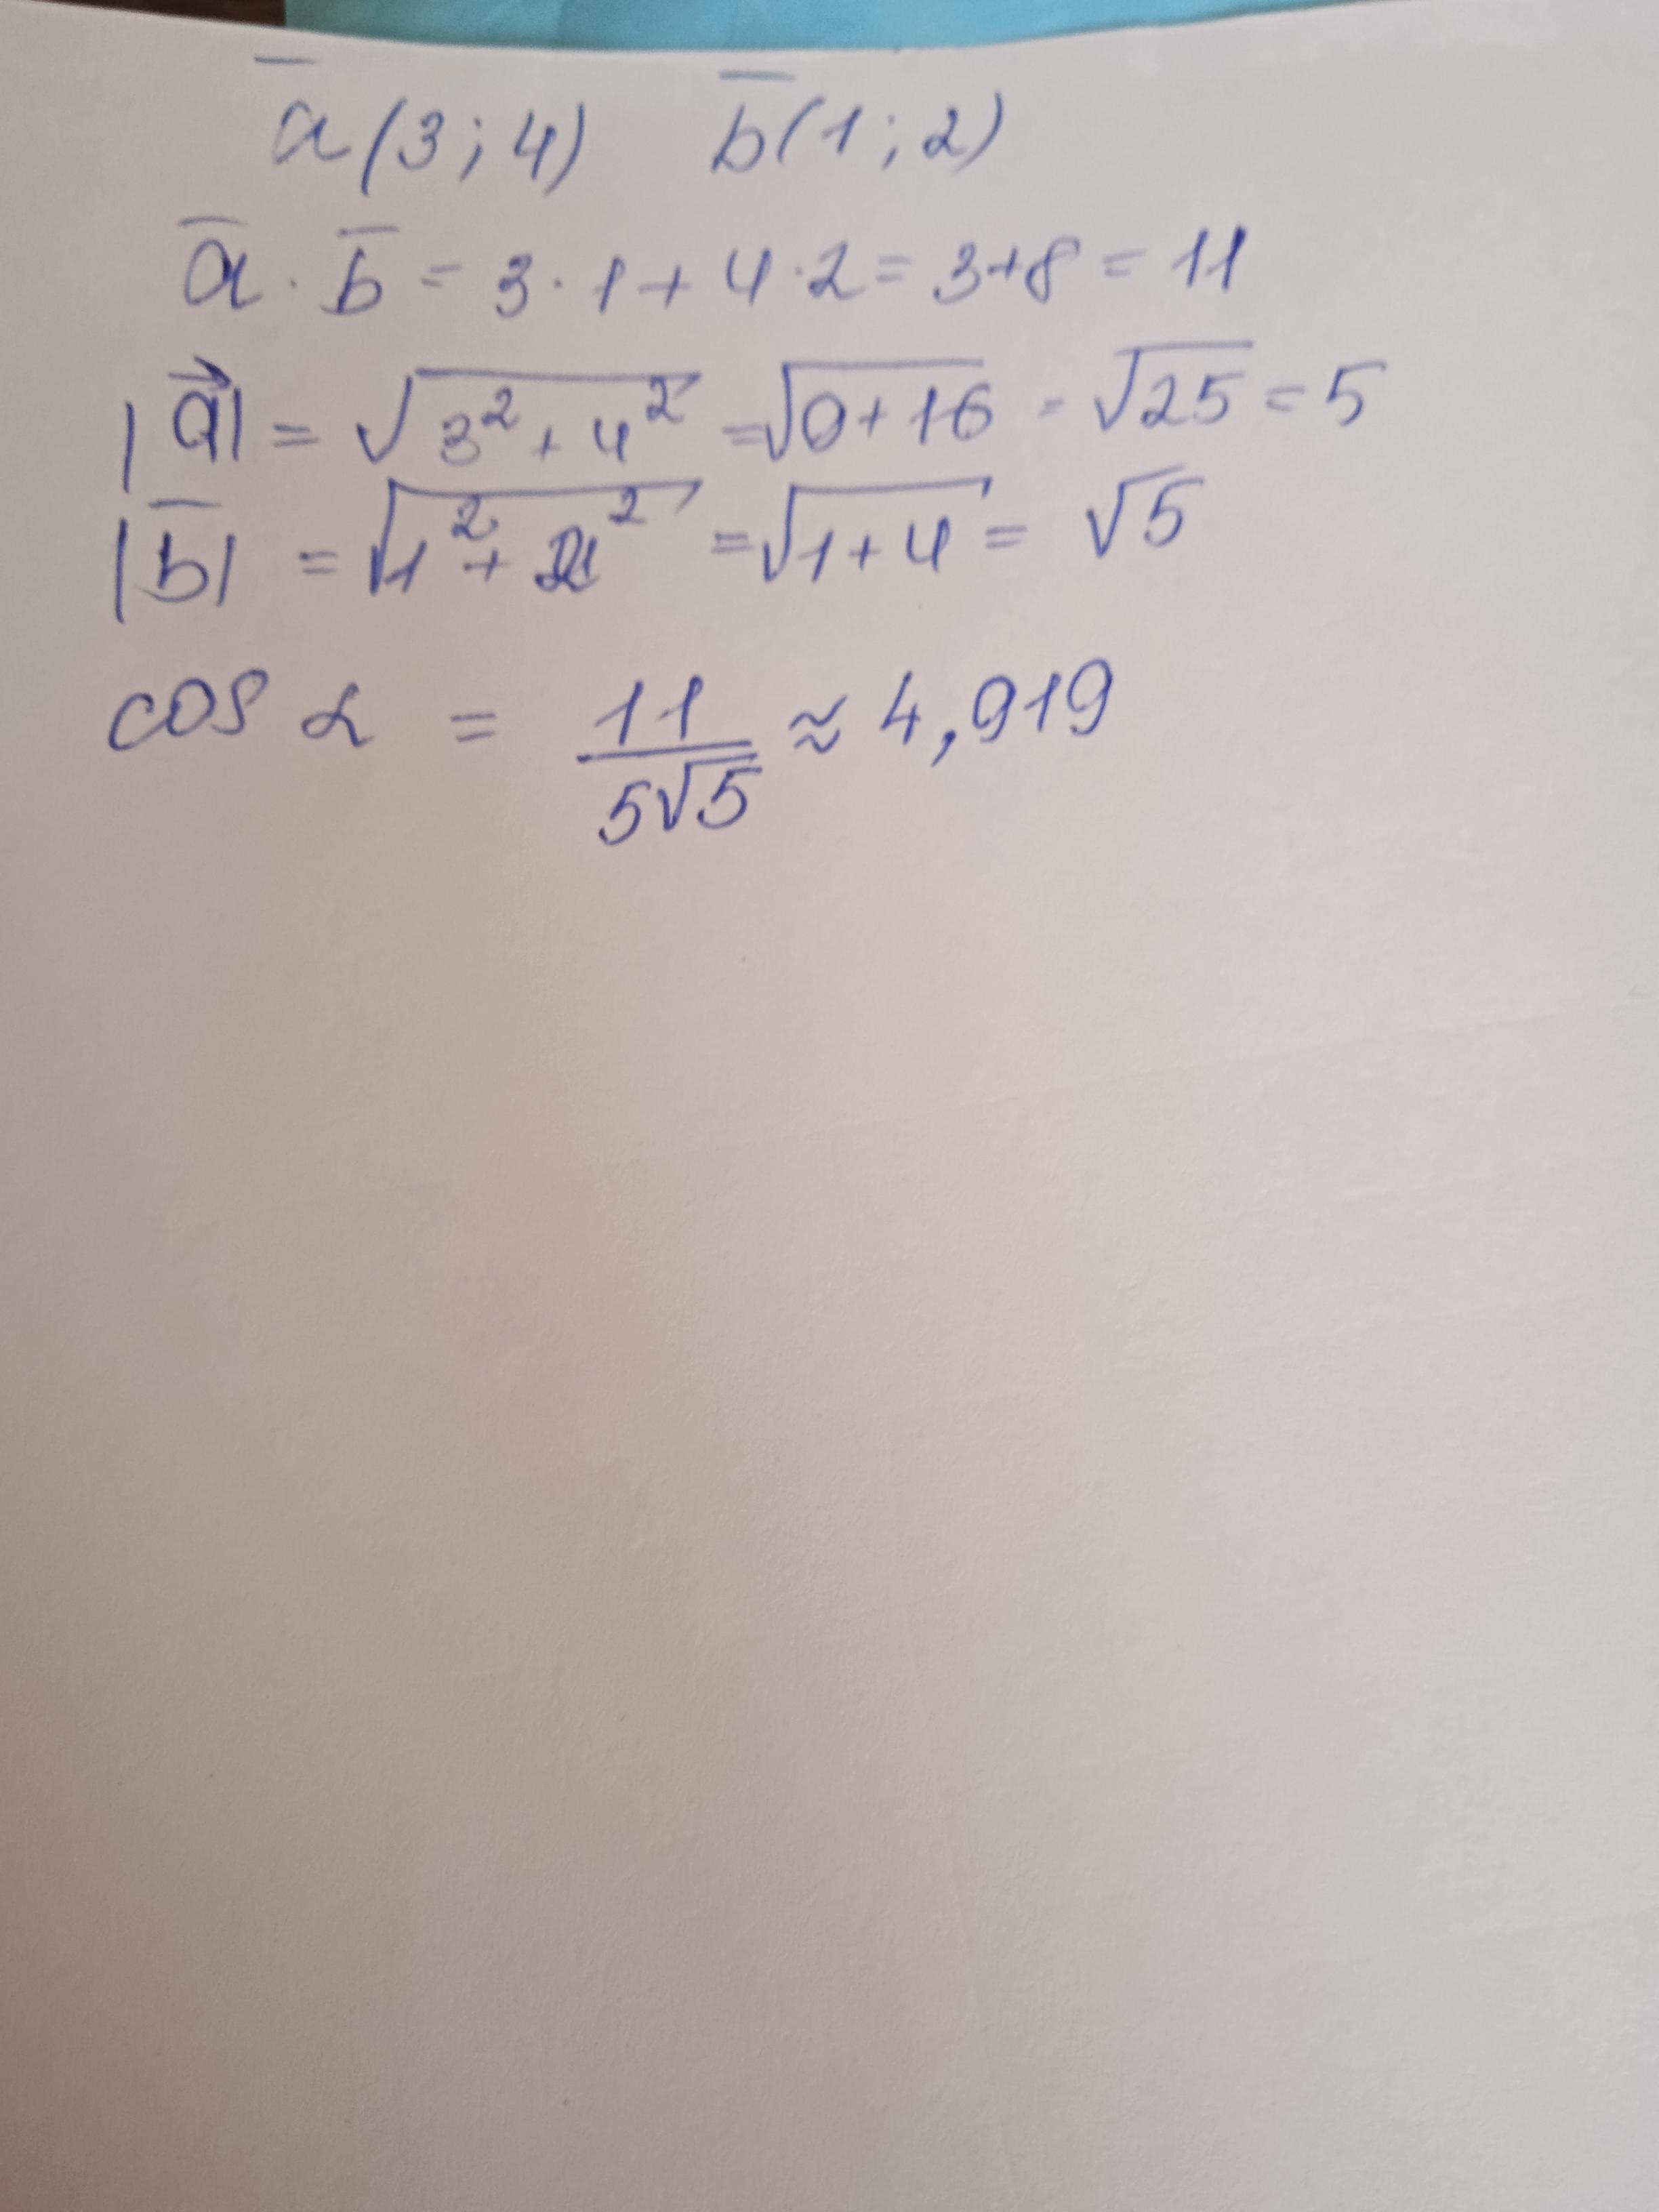 a̅(3;4) b̅(1;2)
a̅ · b̅ = 3 · 1 + 4 · 2 = 3+8 = 11
|a⃗| = √(3² + 4²) = √(9+16) = √25 = 5
|b̅| = √(1² + 2²) = √(1+4) = √5
cos α = 11/(5√5) ≈ 4,919